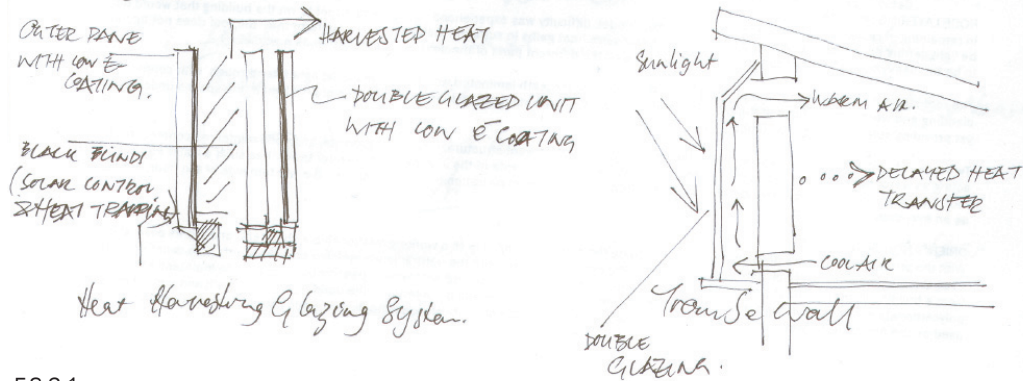 OUTER PANE
WITH LOW E
COATING.
HARVESTED HEAT
DOUBLE GLAZED UNIT
WITH LOW E COATING
BLACK BLINDS
(SOLAR CONTROL
& HEAT TRAPPING)
Heat Harvesting Glazing System.
Sunlight
WARM AIR.
DELAYED HEAT
TRANSFER
COOL AIR
Trombe Wall
DOUBLE
GLAZING.